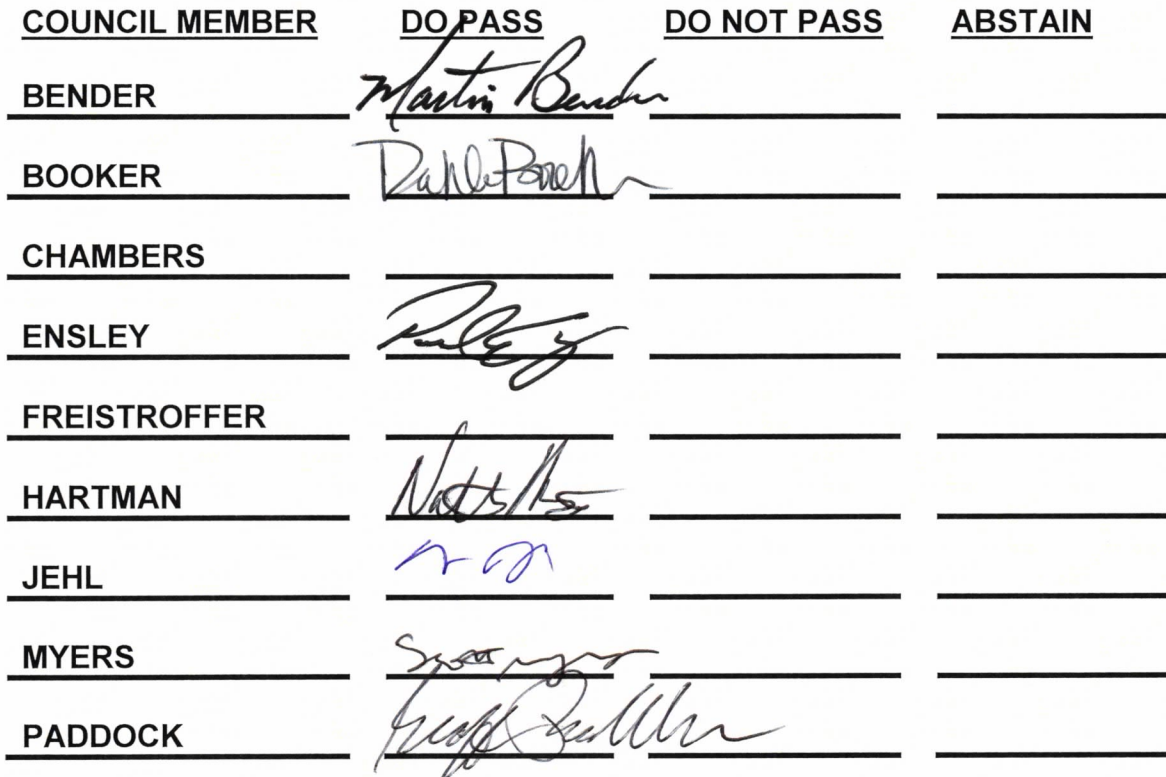 COUNCIL MEMBER DO PASS DO NOT PASS ABSTAIN
BENDER Martin Bender
BOOKER
CHAMBERS
ENSLEY Paul
FREISTROFFER
HARTMAN
JEHL
MYERS Scott Myers
PADDOCK Geoff